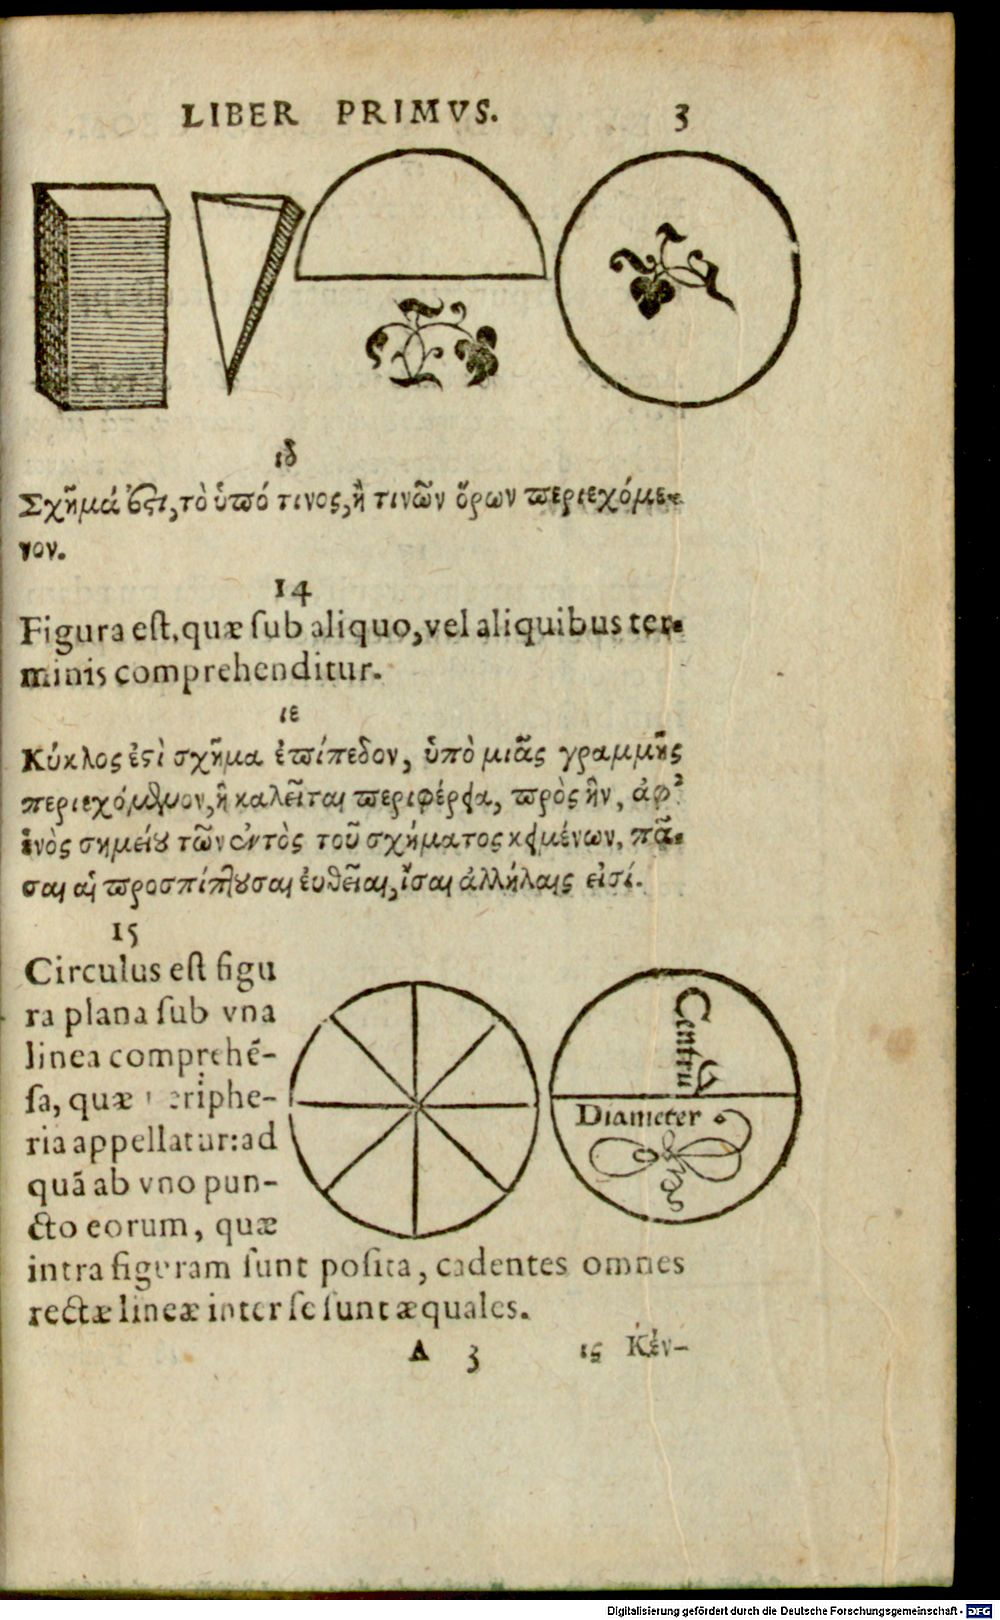 LIBER PRIMVS. 3
ιδ
Σχῆμά ἐστι, τὸ ὑπό τινος, ἢ τινῶν ὅρων περιεχόμε-
νον.
14
Figura est, quæ sub aliquo, vel aliquibus ter-
minis comprehenditur.
ιε
Κύκλος ἐστὶ σχῆμα ἐπίπεδον, ὑπὸ μιᾶς γραμμῆς
περιεχόμενον, ἣ καλεῖται περιφέρεια, πρὸς ἣν, ἀφ᾽
ἑνὸς σημείου τῶν ἐντὸς τοῦ σχήματος κειμένων, πᾶ-
σαι αἱ προσπίπτουσαι εὐθεῖαι, ἴσαι ἀλλήλαις εἰσί.
15
Circulus est figu
ra plana sub vna
linea comprehẽ-
sa, quæ periphe-
ria appellatur: ad
quã ab vno pun-
cto eorum, quæ
Centrũ
Diameter
intra figuram sunt posita, cadentes omnes
rectæ lineæ inter se sunt æquales.
A 3 ις Κέν-
Digitalisierung gefördert durch die Deutsche Forschungsgemeinschaft - DFG